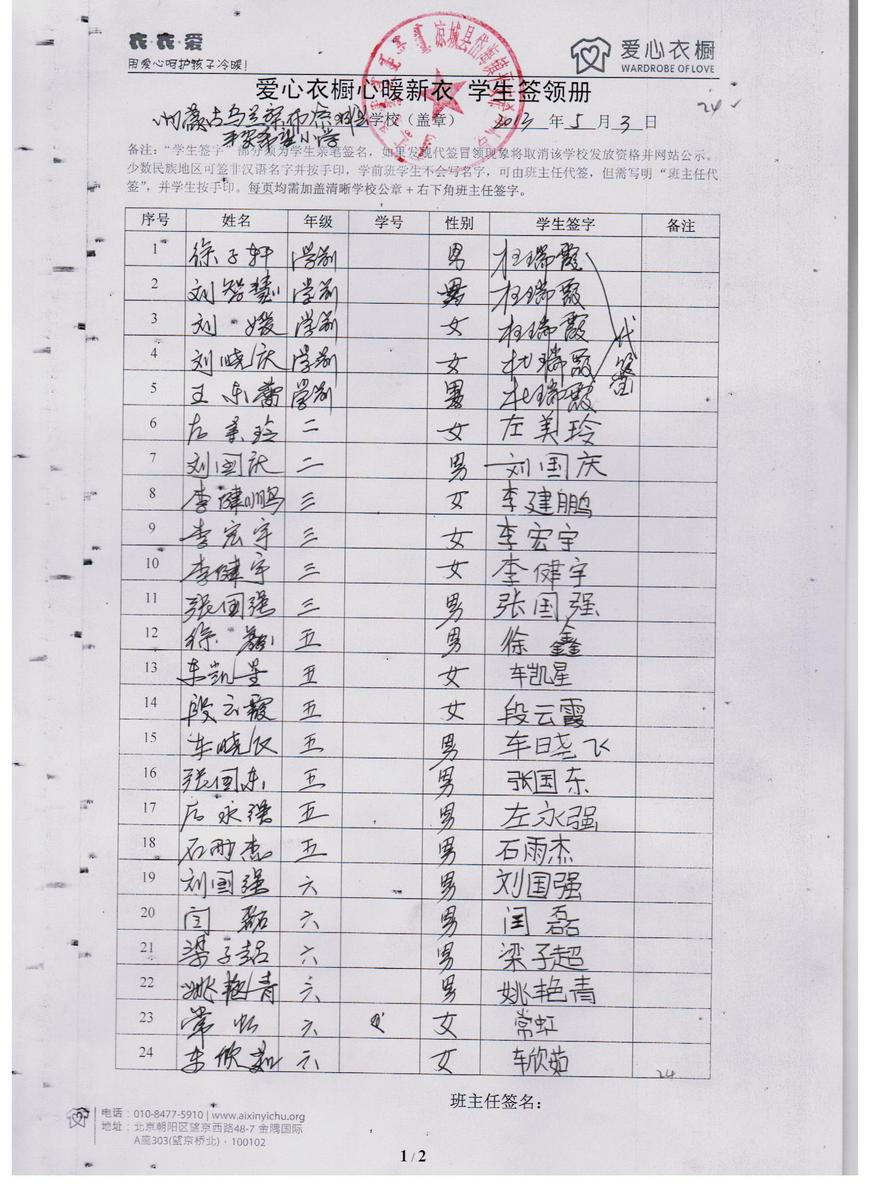 衣·衣·爱
用爱心呵护孩子冷暖!
爱心衣橱
WARDROBE OF LOVE
爱心衣橱心暖新衣 学生签领册
24
内蒙古乌兰察布凉城县学校（盖章） 2013 年 5 月 3 日
平安希望小学
备注：“学生签字”部分须为学生亲笔签名，如果发现代签冒领现象将取消该学校发放资格并网站公示。
少数民族地区可签非汉语名字并按手印，学前班学生不会写名字，可由班主任代签，但需写明“班主任代
签”，并学生按手印。每页均需加盖清晰学校公章+右下角班主任签字。
序号 姓名 年级 学号 性别 学生签字 备注
1 徐子轩 学前 男 杜瑞霞
2 刘智慧 学前 男 杜瑞霞
3 刘媛 学前 女 杜瑞霞
4 刘晓庆 学前 女 杜瑞霞
5 王东蕾 学前 男 杜瑞霞
代签
6 左美玲 二 女 左美玲
7 刘国庆 二 男 刘国庆
8 李健鹏 三 女 李建鹏
9 李宏宇 三 女 李宏宇
10 李健宇 三 女 李健宇
11 张国强 三 男 张国强
12 徐鑫 五 男 徐鑫
13 车凯星 五 女 车凯星
14 段云霞 五 女 段云霞
15 车晓仪 五 男 车晓飞
16 张国东 五 男 张国东
17 左永强 五 男 左永强
18 石雨杰 五 男 石雨杰
19 刘国强 六 男 刘国强
20 闫磊 六 男 闫磊
21 梁子超 六 男 梁子超
22 姚艳青 六 男 姚艳青
23 常虹 六 女 常虹
24 车欣茹 六 女 车欣茹
24
班主任签名：
电话：010-8477-5910 | www.aixinyichu.org
地址：北京朝阳区望京西路48-7 金隅国际
A座303(望京桥北)·100102
1 / 2